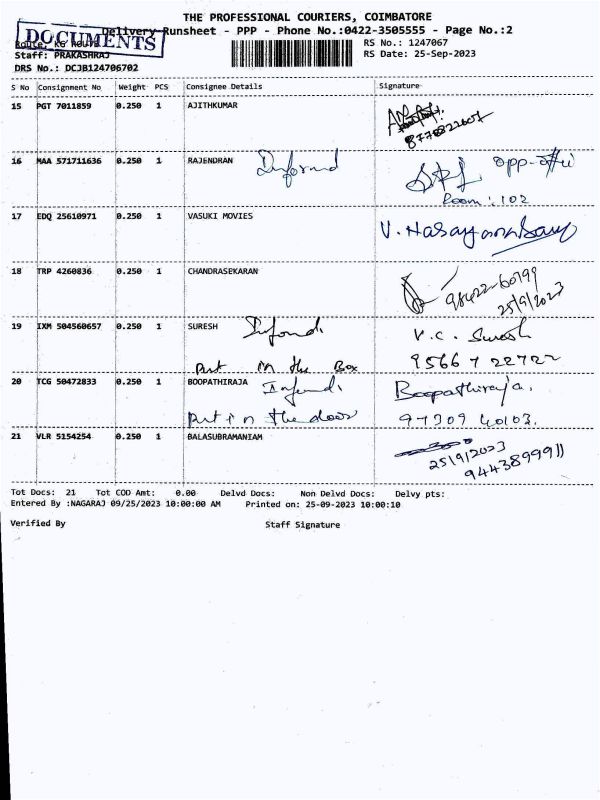 THE PROFESSIONAL COURIERS, COIMBATORE
Delivery Runsheet - PPP - Phone No.:0422-3505555 - Page No.:2
DOCUMENTS
RS No.: 1247067
Staff: PRAKASHRAJ RS Date: 25-Sep-2023
DRS No.: DCJB124706702
S No Consignment No Weight PCS Consignee Details Signature
15 PGT 7011859 0.250 1 AJITHKUMAR
8778822607
16 MAA 571711636 0.250 1 RAJENDRAN Informd opp-
Room : 102
17 EDQ 25610971 0.250 1 VASUKI MOVIES
18 TRP 4260836 0.250 1 CHANDRASEKARAN
98422-60199
25/9/2023
19 IXM 504560657 0.250 1 SURESH V.C. Suresh
Put in the Box 95667 22722
20 TCG 50472833 0.250 1 BOOPATHIRAJA Boopathiraja.
Put in the door 97309 40103.
21 VLR 5154254 0.250 1 BALASUBRAMANIAM
25/9/2023
9443899911
Tot Docs: 21 Tot COD Amt: 0.00 Delvd Docs: Non Delvd Docs: Delvy pts:
Entered By :NAGARAJ 09/25/2023 10:00:00 AM Printed on: 25-09-2023 10:00:10
Verified By Staff Signature